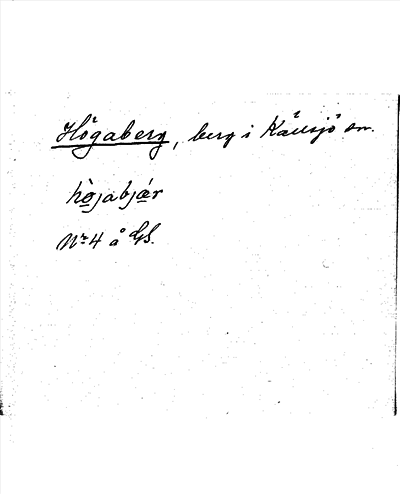 Högaberg, berg i Källsjö sn.
hò̲jabjǽ̲r
Nr 4 å GS.